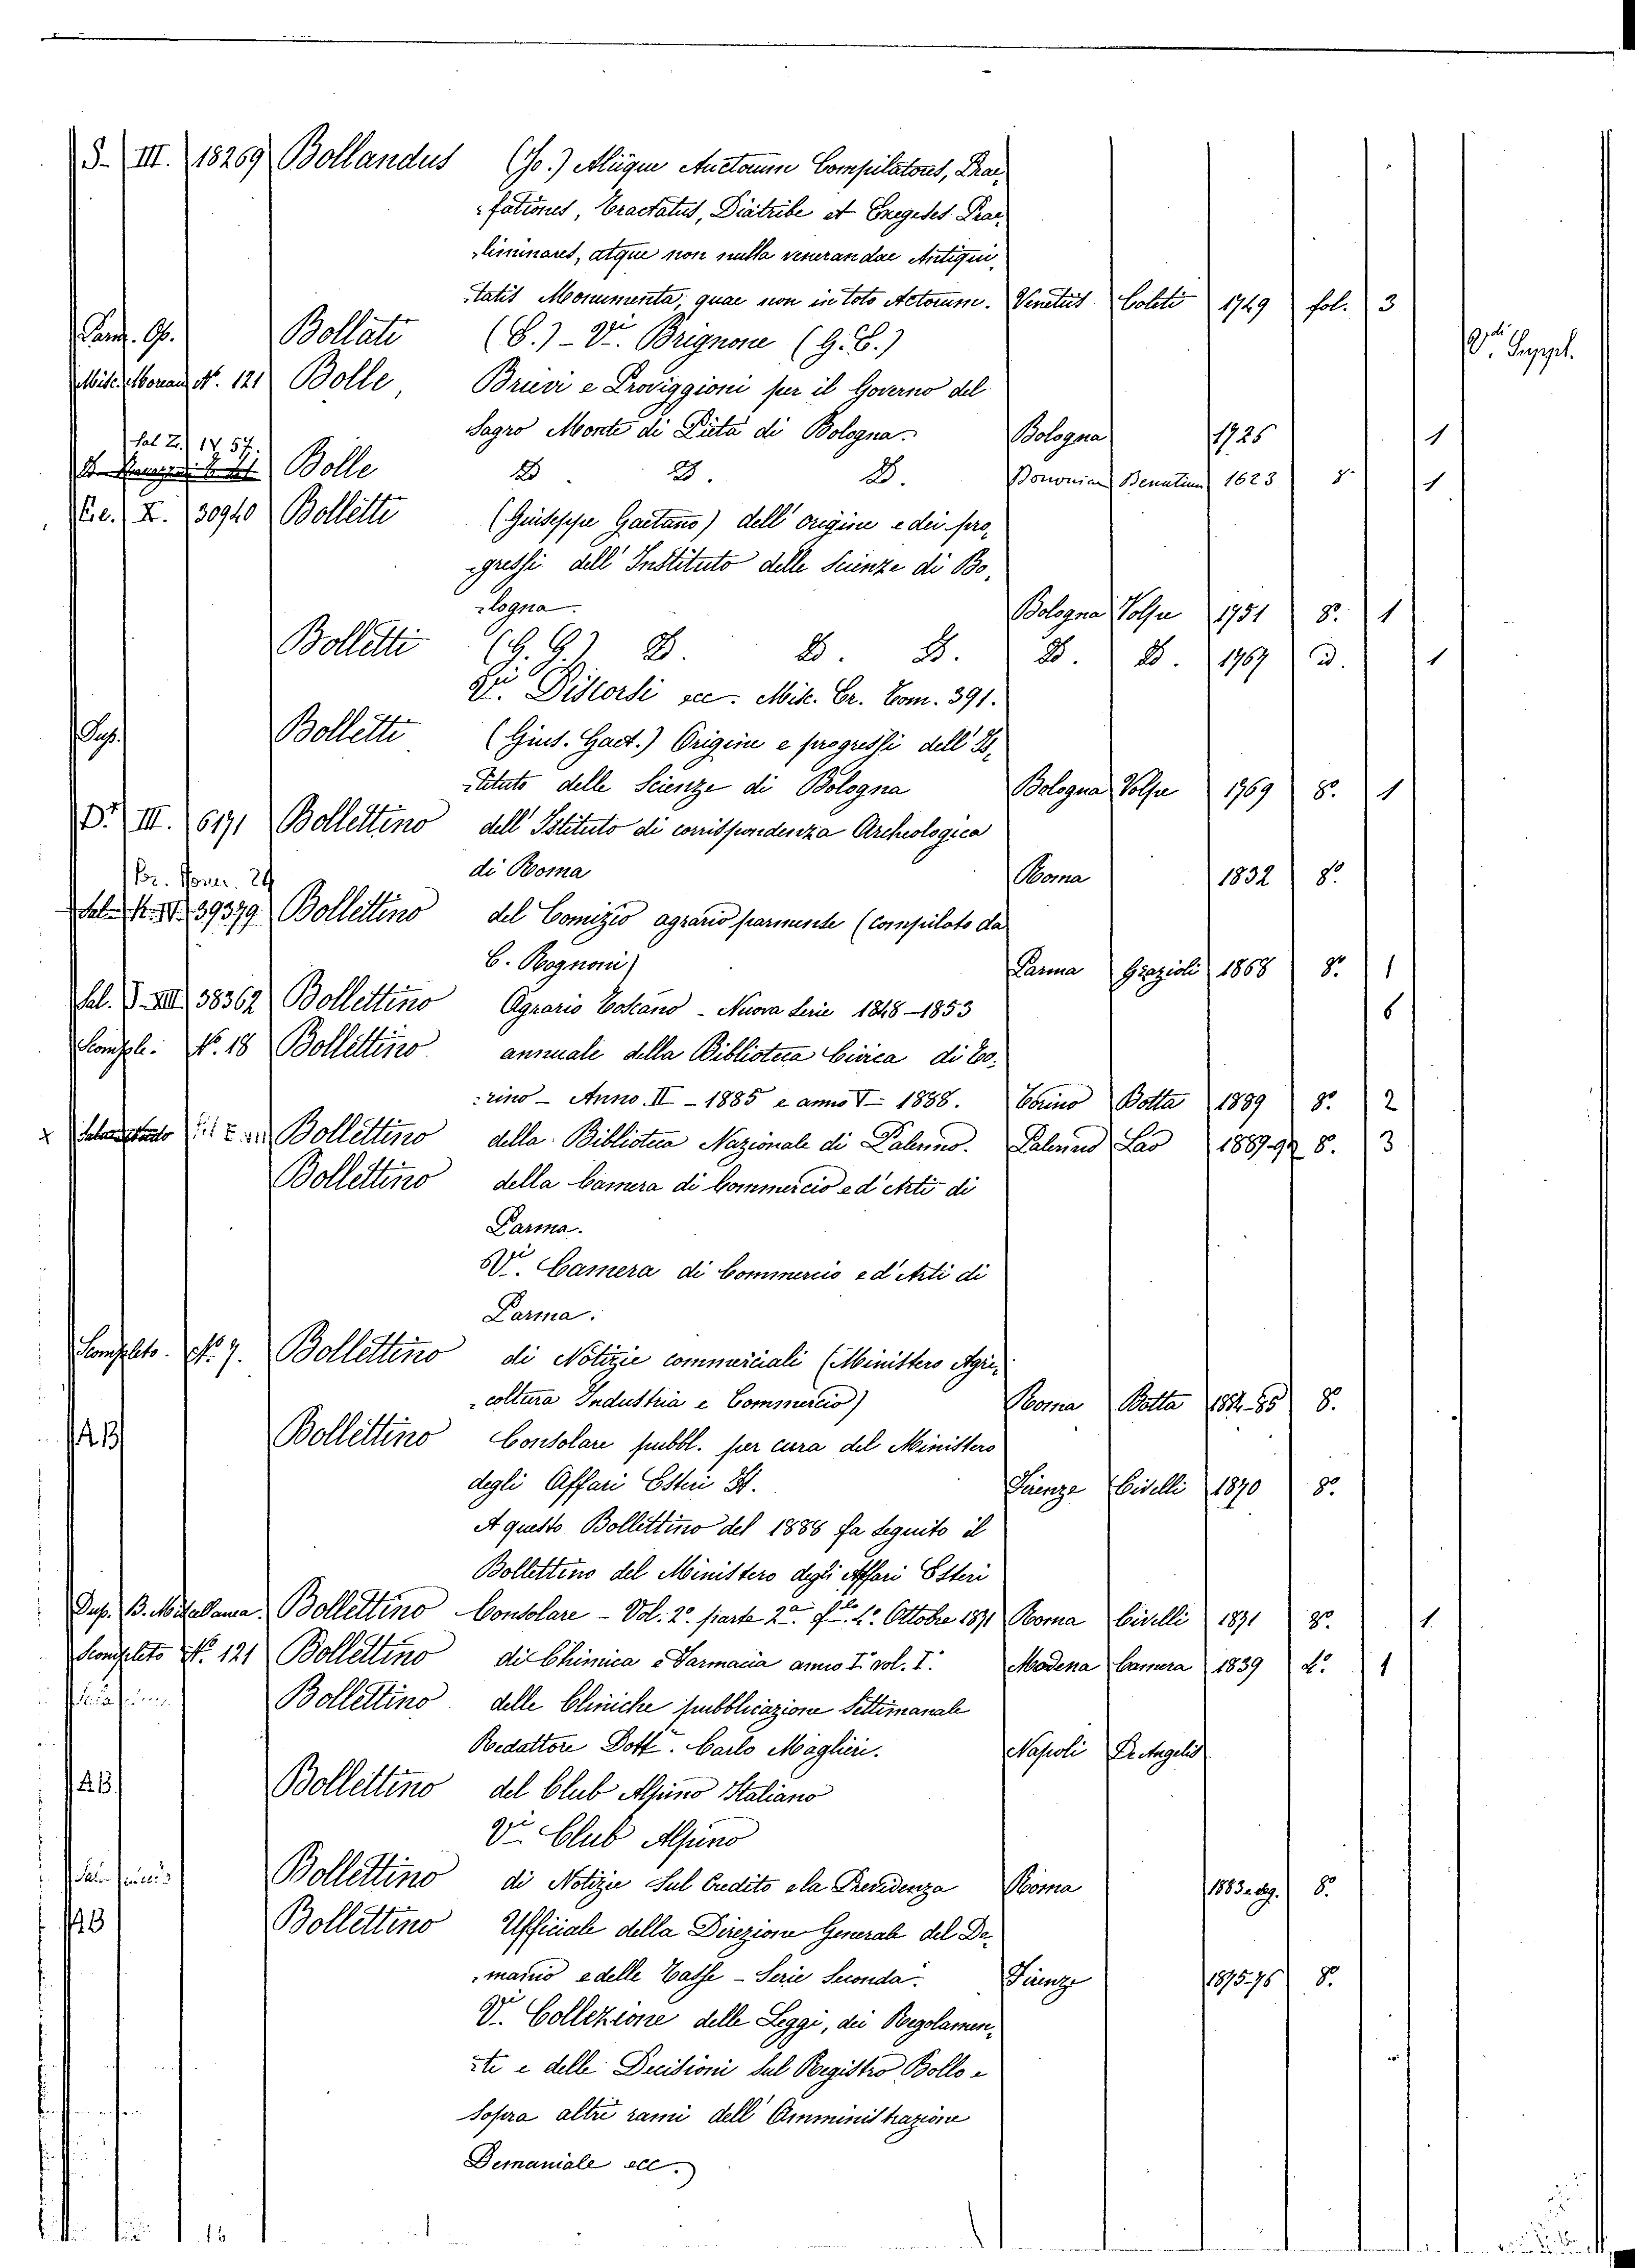 S. III. 18269 Bollandus (Jo.) Aliique Auctorum Compilatores, Prae
fationes, Tractatus, Diatribe et Exegeses Prae
liminares, atque non nulla venerandae Antiqui
tatis Monumenta, quae non in toto Actorum. Venetiis Coleti 1749 fol. 3
Bollati (E.) - Vi. Brignone (G. C.) Vdi Suppl.
Misc. N. 121 Bolle, Brievi e Proviggioni per il Governo del
Sagro Monte di Pietà di Bologna. Bologna 1725 1
Sal. Z. IV. 57.
Bolle D D. D. Bononiae Benatium 1623 8 1
X. 30940 Bolletti (Guiseppe Gaetano) dell' origine e dei pro
gressi dell' Instituto delle Scienze di Bo
logna. Bologna Volpe 1751 8° 1
Bolletti (G. G.) D. D. D. D. D. 1767 D. 1
Vi. Discorsi ecc. Misc. Er. Com. 391.
Dup. Bolletti (Gius. Gaet.) Origine e progressi dell' Is
tituto delle Scienze di Bologna Bologna Volpe 1769 8° 1
III. 6171 Bollettino dell' Istituto di corrispondenza Archeologica
di Roma Roma 1832 8°
39379 Bollettino del Comizio agrario parmense (compilato da
C. Rognoni) Parma Grazioli 1868 8° 1
Sal. J. XIII 38362 Bollettino Agrario Toscano - Nuova Serie 1848-1853 6
Compl. N. 18 Bollettino annuale della Biblioteca Civica di To
rino - Anno II - 1885 e anno V - 1888. Torino Botta 1889 8° 2
x Bollettino della Biblioteca Nazionale di Palermo. Palermo Lao 1889-92 8. 3
Bollettino della Camera di Commercio ed Arti di
Parma.
Vi. Camera di Commercio ed Arti di
Parma.
Completo. N. 7. Bollettino di Notizie commerciali (Ministero Agri
coltura Industria e Commercio) Roma Botta 1884-85 8.
AB Bollettino Consolare pubbl. per cura del Ministero
degli Affari Esteri It. Firenze Civelli 1870 8°
A questo Bollettino del 1888 fa seguito il
Bollettino del Ministero degli Affari Esteri
Dup. B. Bollettino Consolare - Vol. 2° parte 2a f.lo 1° Ottobre 1871 Roma Civelli 1871 8° 1
Completo N. 121 Bollettino di Chimica e Farmacia anno I° vol. I. Modena Camera 1839 4° 1
Bollettino delle Cliniche pubblicazione Settimanale
Redattore Dott. Carlo Maglieri. Napoli De Angelis
AB. Bollettino del Club Alpino Italiano
Vi. Club Alpino
Bollettino di Notizie Sul Credito e la Previdenza Roma 1883 e seg. 8°
AB Bollettino Ufficiale della Direzione Generale del De
manio e delle Tasse - Serie Seconda. Firenze 1875-76 8°
Vi. Collezione delle Leggi, dei Regolamen
ti e delle Decisioni sul Registro Bollo e
Sopra altri rami dell' Amministrazione
Demaniale ecc.